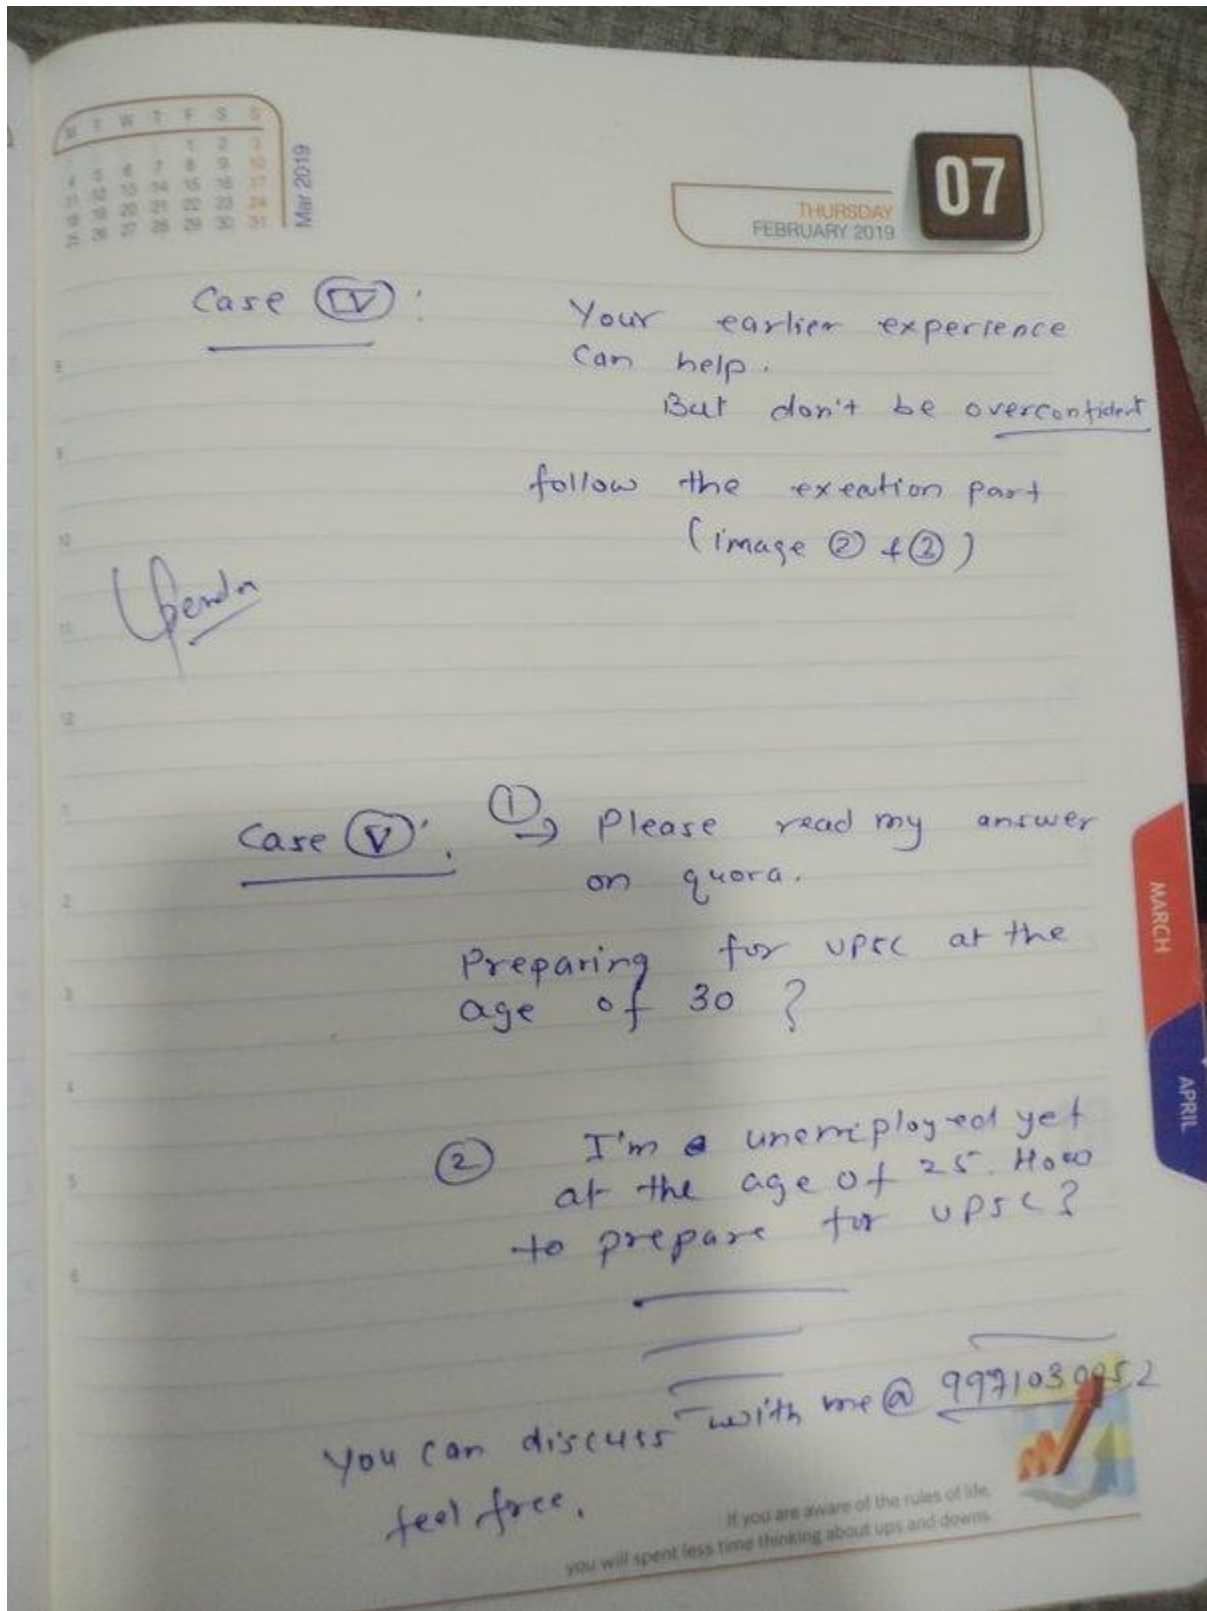 M T W T F S S
1 2 3
4 5 6 7 8 9 10
11 12 13 14 15 16 17
18 19 20 21 22 23 24
25 26 27 28 29 30 31
Mar 2019
07
THURSDAY
FEBRUARY 2019
Case IV :
Your earlier experience
can help.
But don't be overconfident
follow the exeation part
(image ② + ③)
Case V :
① → Please read my answer
on quora.
Preparing for UPSC at the
age of 30 ?
MARCH
② I'm unemployed yet
at the age of 25. How
to prepare for UPSC ?
APRIL
You can discuss with me @ 9971030952
feel free.
If you are aware of the rules of life,
you will spent less time thinking about ups and downs.